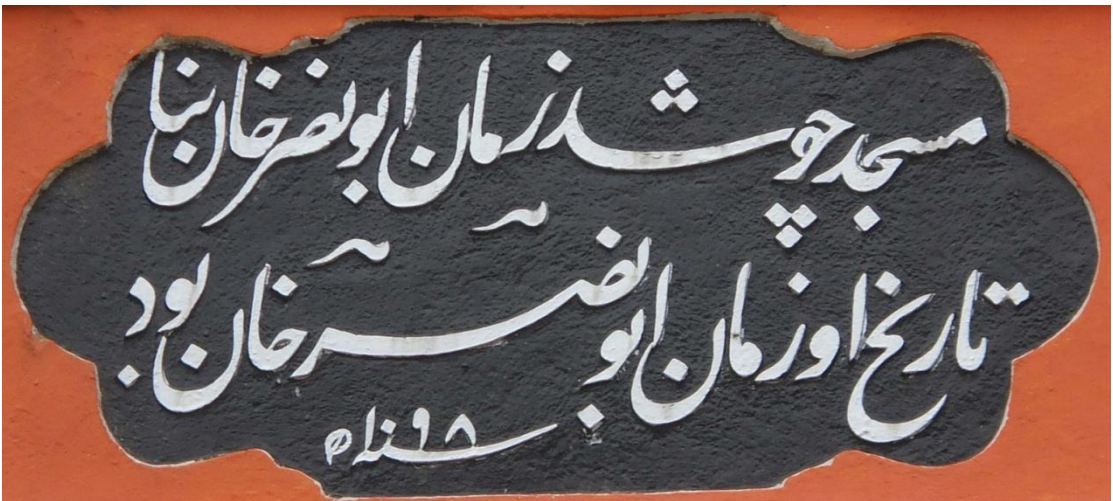 مسجد چو شد زمان ابو نصر خان بنا
تاریخ او زمان ابو نصر خان بود
سنه ۱۰۹۸ ھ